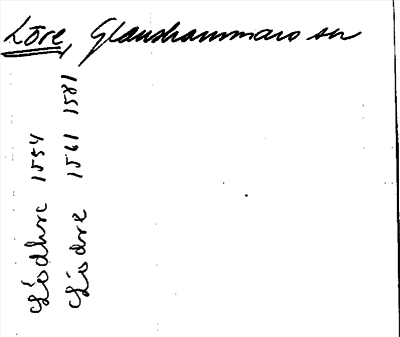 Löre, Glanshammars sn
Lödhre 1554
Lödre 1561 1581